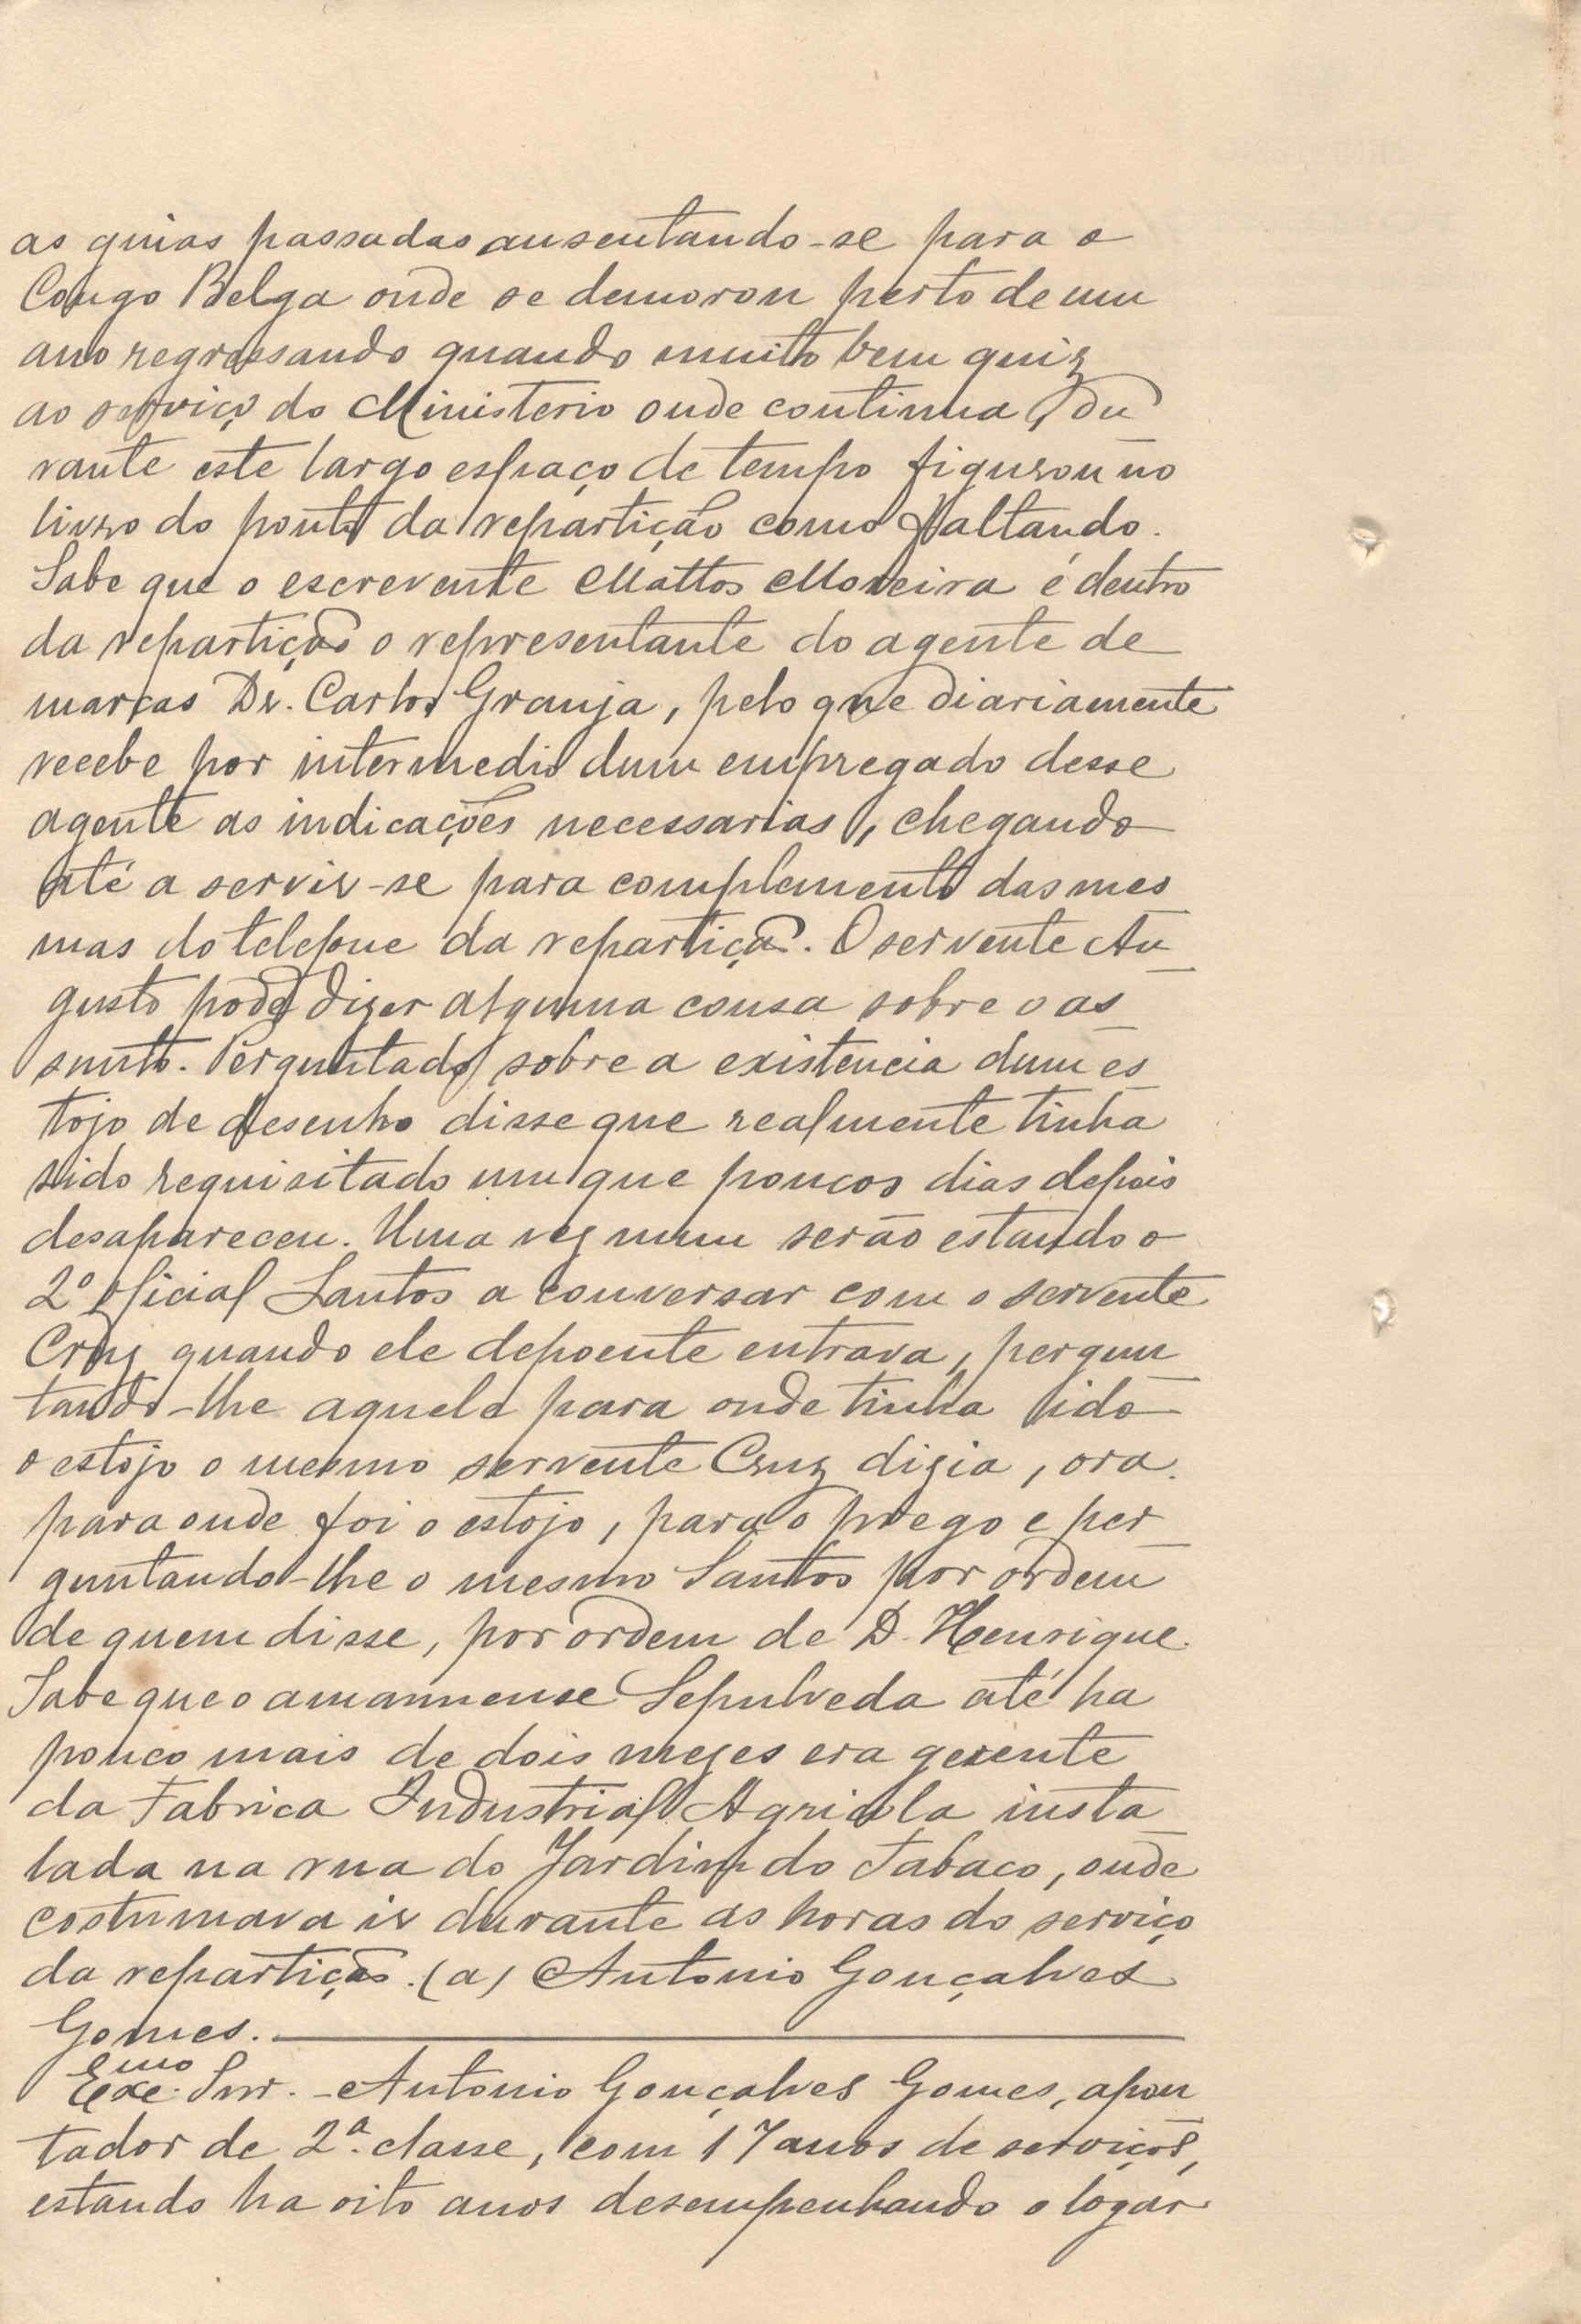 as guias passadas ausentando-se para o
Congo Belga onde se demorou perto de um
ano regressando quando muito bem quiz
ao serviço do Ministerio onde continua, du
rante este largo espaço de tempo figurou no
livro do ponto da repartição como faltando.
Sabe que o escrevente Mattos Moreira é dentro
da repartição o representante do agente de
marcas Dr. Carlos Granja, pelo que diariamente
recebe por intermedio dum empregado desse
agente as indicações necessarias, chegando
até a servir-se para complemento das mes
mas do telefone da repartição. O servente Au
gusto pode dizer alguma cousa sobre o as
sunto. Perguntado sobre a existencia dum es
tojo de desenho disse que realmente tinha
sido requisitado um que poucos dias depois
desapareceu. Uma vez num serão estando o
2º oficial Santos a conversar com o servente
Cruz quando ele depoente entrava, pergun
tando-lhe aquele para onde tinha ido
o estojo o mesmo servente Cruz dizia, ora
para onde foi o estojo, para o prego e per
guntando-lhe o mesmo Santos por ordem
de quem disse, por ordem de D. Henrique.
Sabe que o amanuense Sepulveda até ha
pouco mais de dois mezes era gerente
da Fabrica Industrial Agricola insta
lada na rua do Jardim do Tabaco, onde
costumava ir durante as horas do serviço
da repartição. (a) Antonio Gonçalves
Gomes.
Exc.mo Snr. - Antonio Gonçalves Gomes, apon
tador de 2ª. classe, com 17 anos de serviços,
estando ha oito anos desempenhando o logar